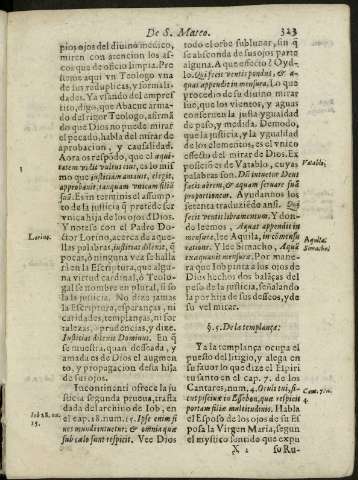 De S. Mateo.
323
pios ojos del diuino medico,
miren con atencion los as-
cos que de oficio limpia. Pre
sume aqui vn Teologo vna
de sus reduplicas, y formali-
dades. Ya viendo del empreſ
tito, digo, que Abacuc arma-
do del rigor Teologo, afirmâ
do que Dios no puede mirar
el pecado, habla del mirar de
aprobacion, y causalidad.
Aora os respôdo, que el aqui-
tatem vidit vultus eius, es lo mis
mo que iustitiam amauit, elegit,
approbauit, tanquam vnicam filiã
suã. Es in terminis el assump-
to de la justicia q̃ pretẽde ser
vnica hija de los ojos d̃ Dios.
Y notese con el Padre Do-
ctor Lorino, acerca de aque-
llas palabras, iustitias dilexit, q̃
pocas, ò ninguna vez se halla
rà en la Escritura, que algu-
na virtud cardinal, ò Teolo-
gal se nombre en plural, si so
la la justicia. No dize jamas
la Escritura, esperanças, ni
caridades, templanças, ni for
talezas, prudencias, y dize.
Iustitias dilexit Dominus. En q̃
se muestra, quan deseada, y
amada es de Dios el augmen
to, y propagacion desta hija
de sus ojos.
Incontinenti ofrece la ju
sticia segunda prueua, trasla
dada del archiuo de Iob, en
el cap. 28. num. 15. Ipse enim fi
nes mundi intuetur: & omnia quæ
sub cælo sunt respicit. Vee Dios
Lorino.
Iob 28. nu.
15.
todo el orbe sublunar, sin q̃
se absconda de sus ojos parte
alguna. A que effecto? Oyd-
lo. Qui fecit ventis pondus, & a-
quas appendit in mensura. Lo que
procede de su diuino mirar
es, que los vientos, y aguas
conseruen la justa ygualdad
de peso, y medida. De modo,
que la justicia, y la ygualdad
de los elementos, es el vnico
effecto del mirar de Dios. Ex
posicion de Vatablo, cuyas
palabras son. Dũ intuetur Deus
facit abrem, & aquam seruare suã
proportionem. Ayudannos los
setenta traduziẽdo ansi. Qui
fecit ventis libramentum. Y don-
de leemos, Aquas appendit in
mensura, lee Aquila, in cõmensu
ratione. Y lee Simacho, Aquas
exæquauit mensura. Por mane-
ra que Iob pinta a los ojos de
Dios hechos dos balãças del
peso de la justicia, señalando
la por hija de sus deseos, y de
su vel mirar.
Vatablo.
Aquila.
Simacho.
§. 5. De la templança.
Ya la templança ocupa el
puesto del litigio, y alega en
su fauor lo que dize el Espiri
tu santo en el cap. 7. de los
Cantares, num. 4. Oculi tui, si-
cut piscinæ in Essebon, quæ respicit
portam filiæ multitudinis. Habla
el Esposo de los ojos de su Es
posa la Virgen Maria, segun
el mystico sentido que expu
Cant. 7. n.
4.
X 2
so Ru-